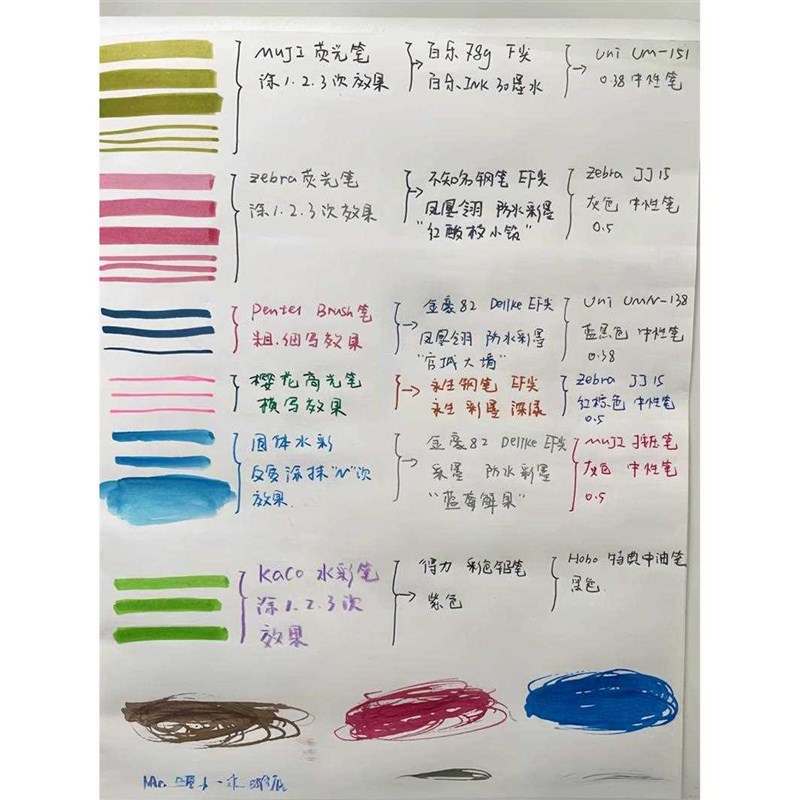 MUJI 荧光笔
涂1.2.3次效果
百乐 78g F尖
百乐INK 30墨水
Uni UM-151
0.38 中性笔
Zebra 荧光笔
涂1.2.3次效果
不知名钢笔 EF尖
凤凰翎 防水彩墨
"红酸枝小铅"
Zebra JJ15
灰色 中性笔
0.5
Pentel Brush笔
粗.细写效果
金豪82 Delike EF尖
凤凰翎 防水彩墨
"宫城大墙"
Uni UMN-138
蓝黑色 中性笔
0.38
樱花高光笔
横写效果
永生钢笔 EF尖
永生 彩墨
Zebra JJ15
红棕色 中性笔
0.5
固体水彩
反复涂抹"N"次
效果.
金豪82 Delike EF尖
采墨 防水彩墨
"蓝莓鲜果"
MUJI 按动笔
灰色 中性笔
0.5
Kaco 水彩笔
涂1.2.3次
效果
得力 彩色铅笔
紫色
Hobo 特典中油笔
黑色.
Mr.